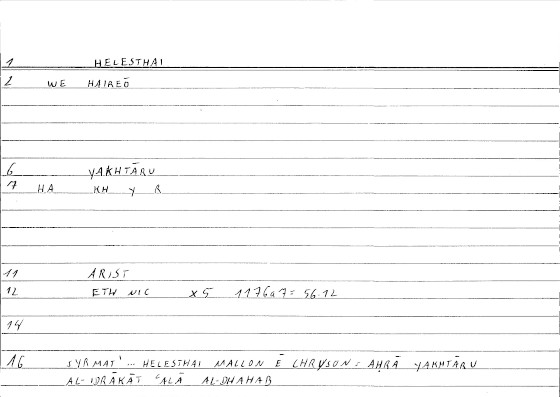 1 HELESTHAI
2 WE HAIREŌ
6 YAKHTĀRU
7 HA KH Y R
11 ARIST
12 ETH NIC x5 1176a7 = 56.12
14
16 SYRMAT' ... HELESTHAI MALLON Ē CHRYSON : AḤRĀ YAKHTĀRU
AL-IDRĀKĀT ʿALĀ AL-DHAHAB